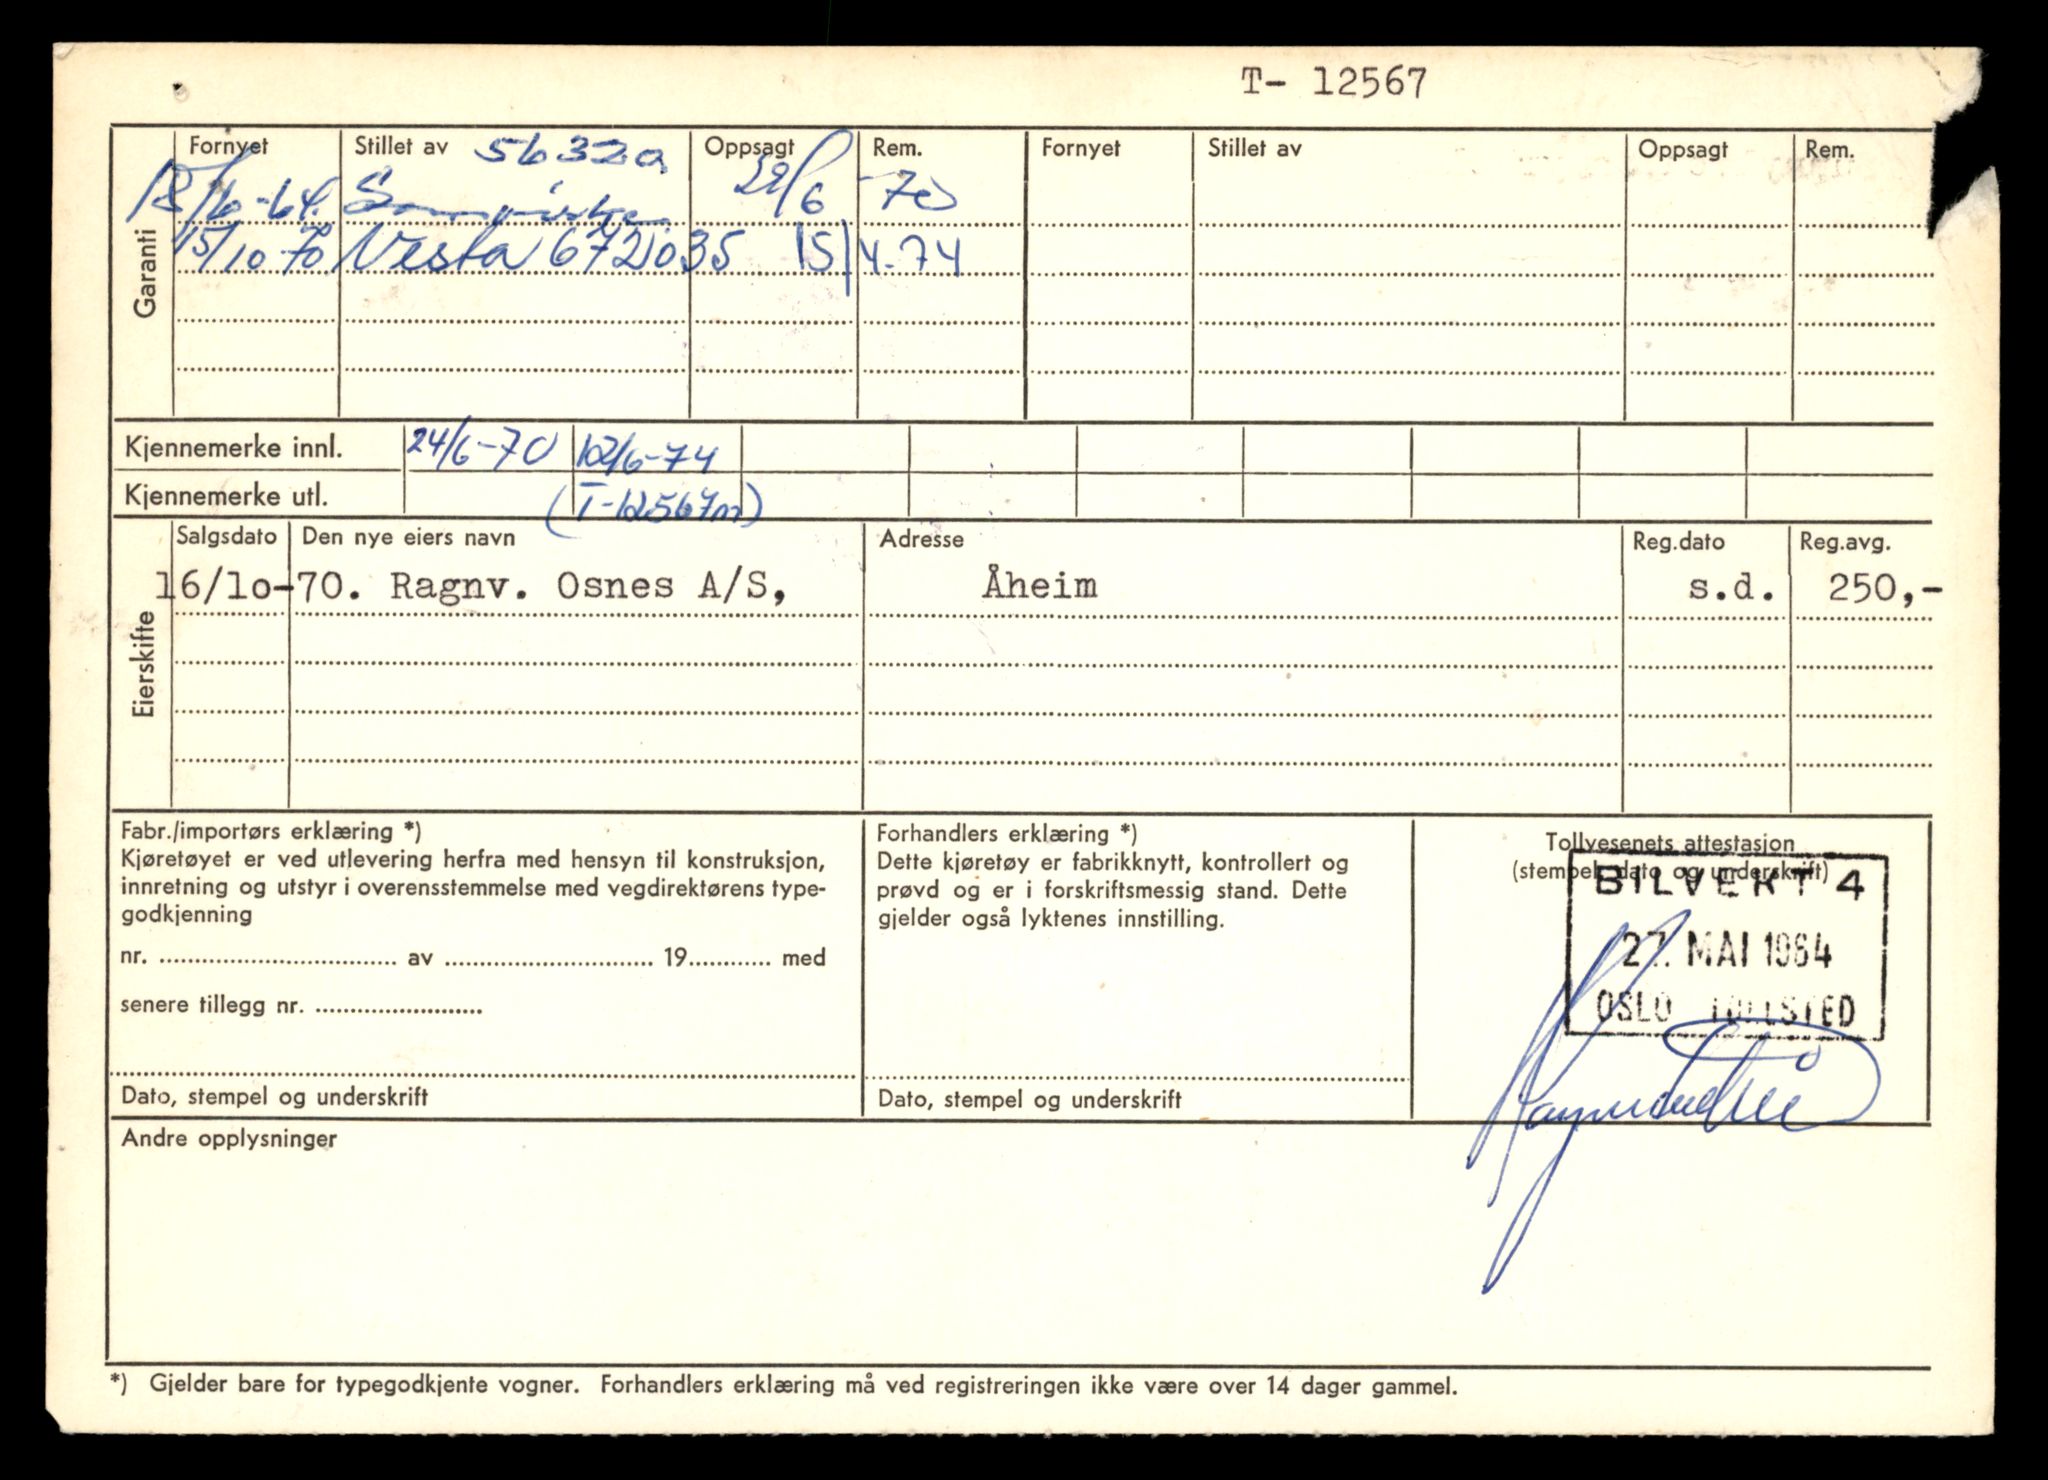 T- 12567
Garanti
Fornyet Stillet av 56320 Oppsagt Rem. Fornyet Stillet av Oppsagt Rem.
/6-64. Samvirke /6 -70
15/10-70 Vesta 672035 15/4-74
Kjennemerke innl. 24/6-70 12/6-74
Kjennemerke utl. (T-12567m)
Eierskifte
Salgsdato Den nye eiers navn Adresse Reg.dato Reg.avg.
16/10-70. Ragnv. Osnes A/S, Åheim s.d. 250,-
Fabr./importørs erklæring *)
Kjøretøyet er ved utlevering herfra med hensyn til konstruksjon,
innretning og utstyr i overensstemmelse med vegdirektørens type-
godkjenning
nr. .......... av .......... 19.......... med
senere tillegg nr. ..........
Dato, stempel og underskrift
Forhandlers erklæring *)
Dette kjøretøy er fabrikknytt, kontrollert og
prøvd og er i forskriftsmessig stand. Dette
gjelder også lyktenes innstilling.
Dato, stempel og underskrift
Tollvesenets attestasjon
(stempel, dato og underskrift)
BILVEKT 4
27. MAI 1964
OSLO TOLLSTED
Andre opplysninger
*) Gjelder bare for typegodkjente vogner. Forhandlers erklæring må ved registreringen ikke være over 14 dager gammel.